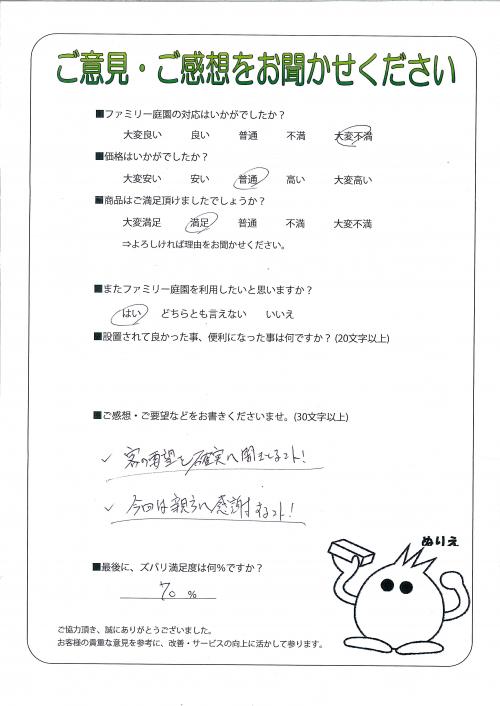 ご意見・ご感想をお聞かせください
■ファミリー庭園の対応はいかがでしたか？
大変良い　良い　普通　不満　大変不満
■価格はいかがでしたか？
大変安い　安い　普通　高い　大変高い
■商品はご満足頂けましたでしょうか？
大変満足　満足　普通　不満　大変不満
⇒よろしければ理由をお聞かせください。
■またファミリー庭園を利用したいと思いますか？
はい　どちらとも言えない　いいえ
■設置されて良かった事、便利になった事は何ですか？(20文字以上)
■ご感想・ご要望などをお書きくださいませ。(30文字以上)
✓ 客の要望を確実に聞
✓ 今回は親方に感謝
ぬりえ
■最後に、ズバリ満足度は何％ですか？
70 ％
ご協力頂き、誠にありがとうございました。
お客様の貴重な意見を参考に、改善・サービスの向上に活かして参ります。